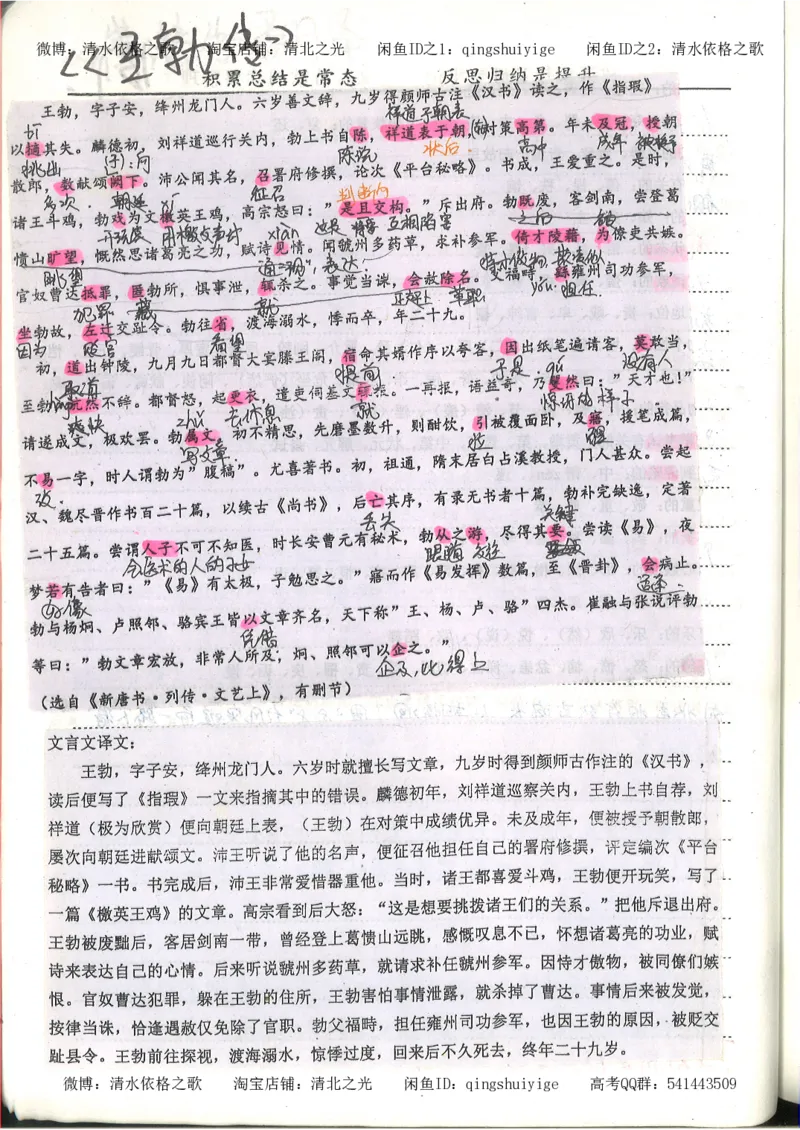 微博：清水依格之歌 淘宝店铺：清北之光 闲鱼ID之1：qingshuiyige 闲鱼ID之2：清水依格之歌
《王勃传》
积累总结是常态 反思归纳是提升
王勃，字子安，绛州龙门人。六岁善文辞，九岁得颜师古注《汉书》读之，作《指瑕》
祥道予朝表
以擿其失。麟德初，刘祥道巡行关内，勃上书自陈，祥道表于朝，对策高第。年未及冠，授朝
挑出 陈说 状后 高中 成年
散郎，数献颂阙下。沛公闻其名，召署府修撰，论次《平台秘略》。书成，王爱重之。是时，
多次 朝廷 xí 征召
诸王斗鸡，勃戏为文檄英王鸡，高宗怒曰：”是且交构。”斥出府。勃既废，客剑南，尝登葛
开玩笑 用檄文声讨 xiàn 互相陷害 之后
愦山旷望，慨然思诸葛亮之功，赋诗见情。闻虢州多药草，求补参军。倚才陵藉，为僚吏共嫉。
眺望 通“现”，表达
官奴曹达抵罪，匿勃所，惧事泄，辄杀之。事觉当诛，会赦除名。父福畤，繇雍州司功参军，
犯罪 藏 就 正碰上 革职 yóu 担任
坐勃故，左迁交趾令。勃往省，渡海溺水，悸而卒，年二十九。
因为 贬官 看望
初，道出钟陵，九月九日都督大宴滕王阁，宿命其婿作序以夸客，因出纸笔遍请客，莫敢当，
取道 于是 没有人
至勃，沆然不辞。都督怒，起更衣，遣吏伺其文辄报。一再报，语益奇，乃矍然曰：”天才也！”
去休息 就 惊讶的样子
请遂成文，极欢罢。勃属文，初不精思，先磨墨数升，则酣饮，引被覆面卧，及寤，援笔成篇，
zhǔ 写文章 拉 醒
不易一字，时人谓勃为”腹稿”。尤喜著书。初，祖通，隋末居白占溪教授，门人甚众。尝起
改
汉、魏尽晋作书百二十篇，以续古《尚书》，后亡其序，有录无书者十篇，勃补完缺逸，定著
丢失 关键
二十五篇。尝谓人子不可不知医，时长安曹元有秘术，勃从之游，尽得其要。尝读《易》，夜
会医术的人的子女 跟随
梦若有告者曰：”《易》有太极，子勉思之。”寤而作《易发挥》数篇，至《晋卦》，会病止。
好像
勃与杨炯、卢照邻、骆宾王皆以文章齐名，天下称”王、杨、卢、骆”四杰。崔融与张说评勃
凭借
等曰：”勃文章宏放，非常人所及，炯、照邻可以企之。”
企及，比得上
（选自《新唐书·列传·文艺上》，有删节）
文言文译文：
王勃，字子安，绛州龙门人。六岁时就擅长写文章，九岁时得到颜师古作注的《汉书》，
读后便写了《指瑕》一文来指摘其中的错误。麟德初年，刘祥道巡察关内，王勃上书自荐，刘
祥道（极为欣赏）便向朝廷上表，（王勃）在对策中成绩优异。未及成年，便被授予朝散郎，
屡次向朝廷进献颂文。沛王听说了他的名声，便征召他担任自己的署府修撰，评定编次《平台
秘略》一书。书完成后，沛王非常爱惜器重他。当时，诸王都喜爱斗鸡，王勃便开玩笑，写了
一篇《檄英王鸡》的文章。高宗看到后大怒：“这是想要挑拨诸王们的关系。”把他斥退出府。
王勃被废黜后，客居剑南一带，曾经登上葛愦山远眺，感慨叹息不已，怀想诸葛亮的功业，赋
诗来表达自己的心情。后来听说虢州多药草，就请求补任虢州参军。因恃才傲物，被同僚们嫉
恨。官奴曹达犯罪，躲在王勃的住所，王勃害怕事情泄露，就杀掉了曹达。事情后来被发觉，
按律当诛，恰逢遇赦仅免除了官职。勃父福畤，担任雍州司功参军，也因王勃的原因，被贬交
趾县令。王勃前往探视，渡海溺水，惊悸过度，回来后不久死去，终年二十九岁。
微博：清水依格之歌 淘宝店铺：清北之光 闲鱼ID：qingshuiyige 高考QQ群：541443509